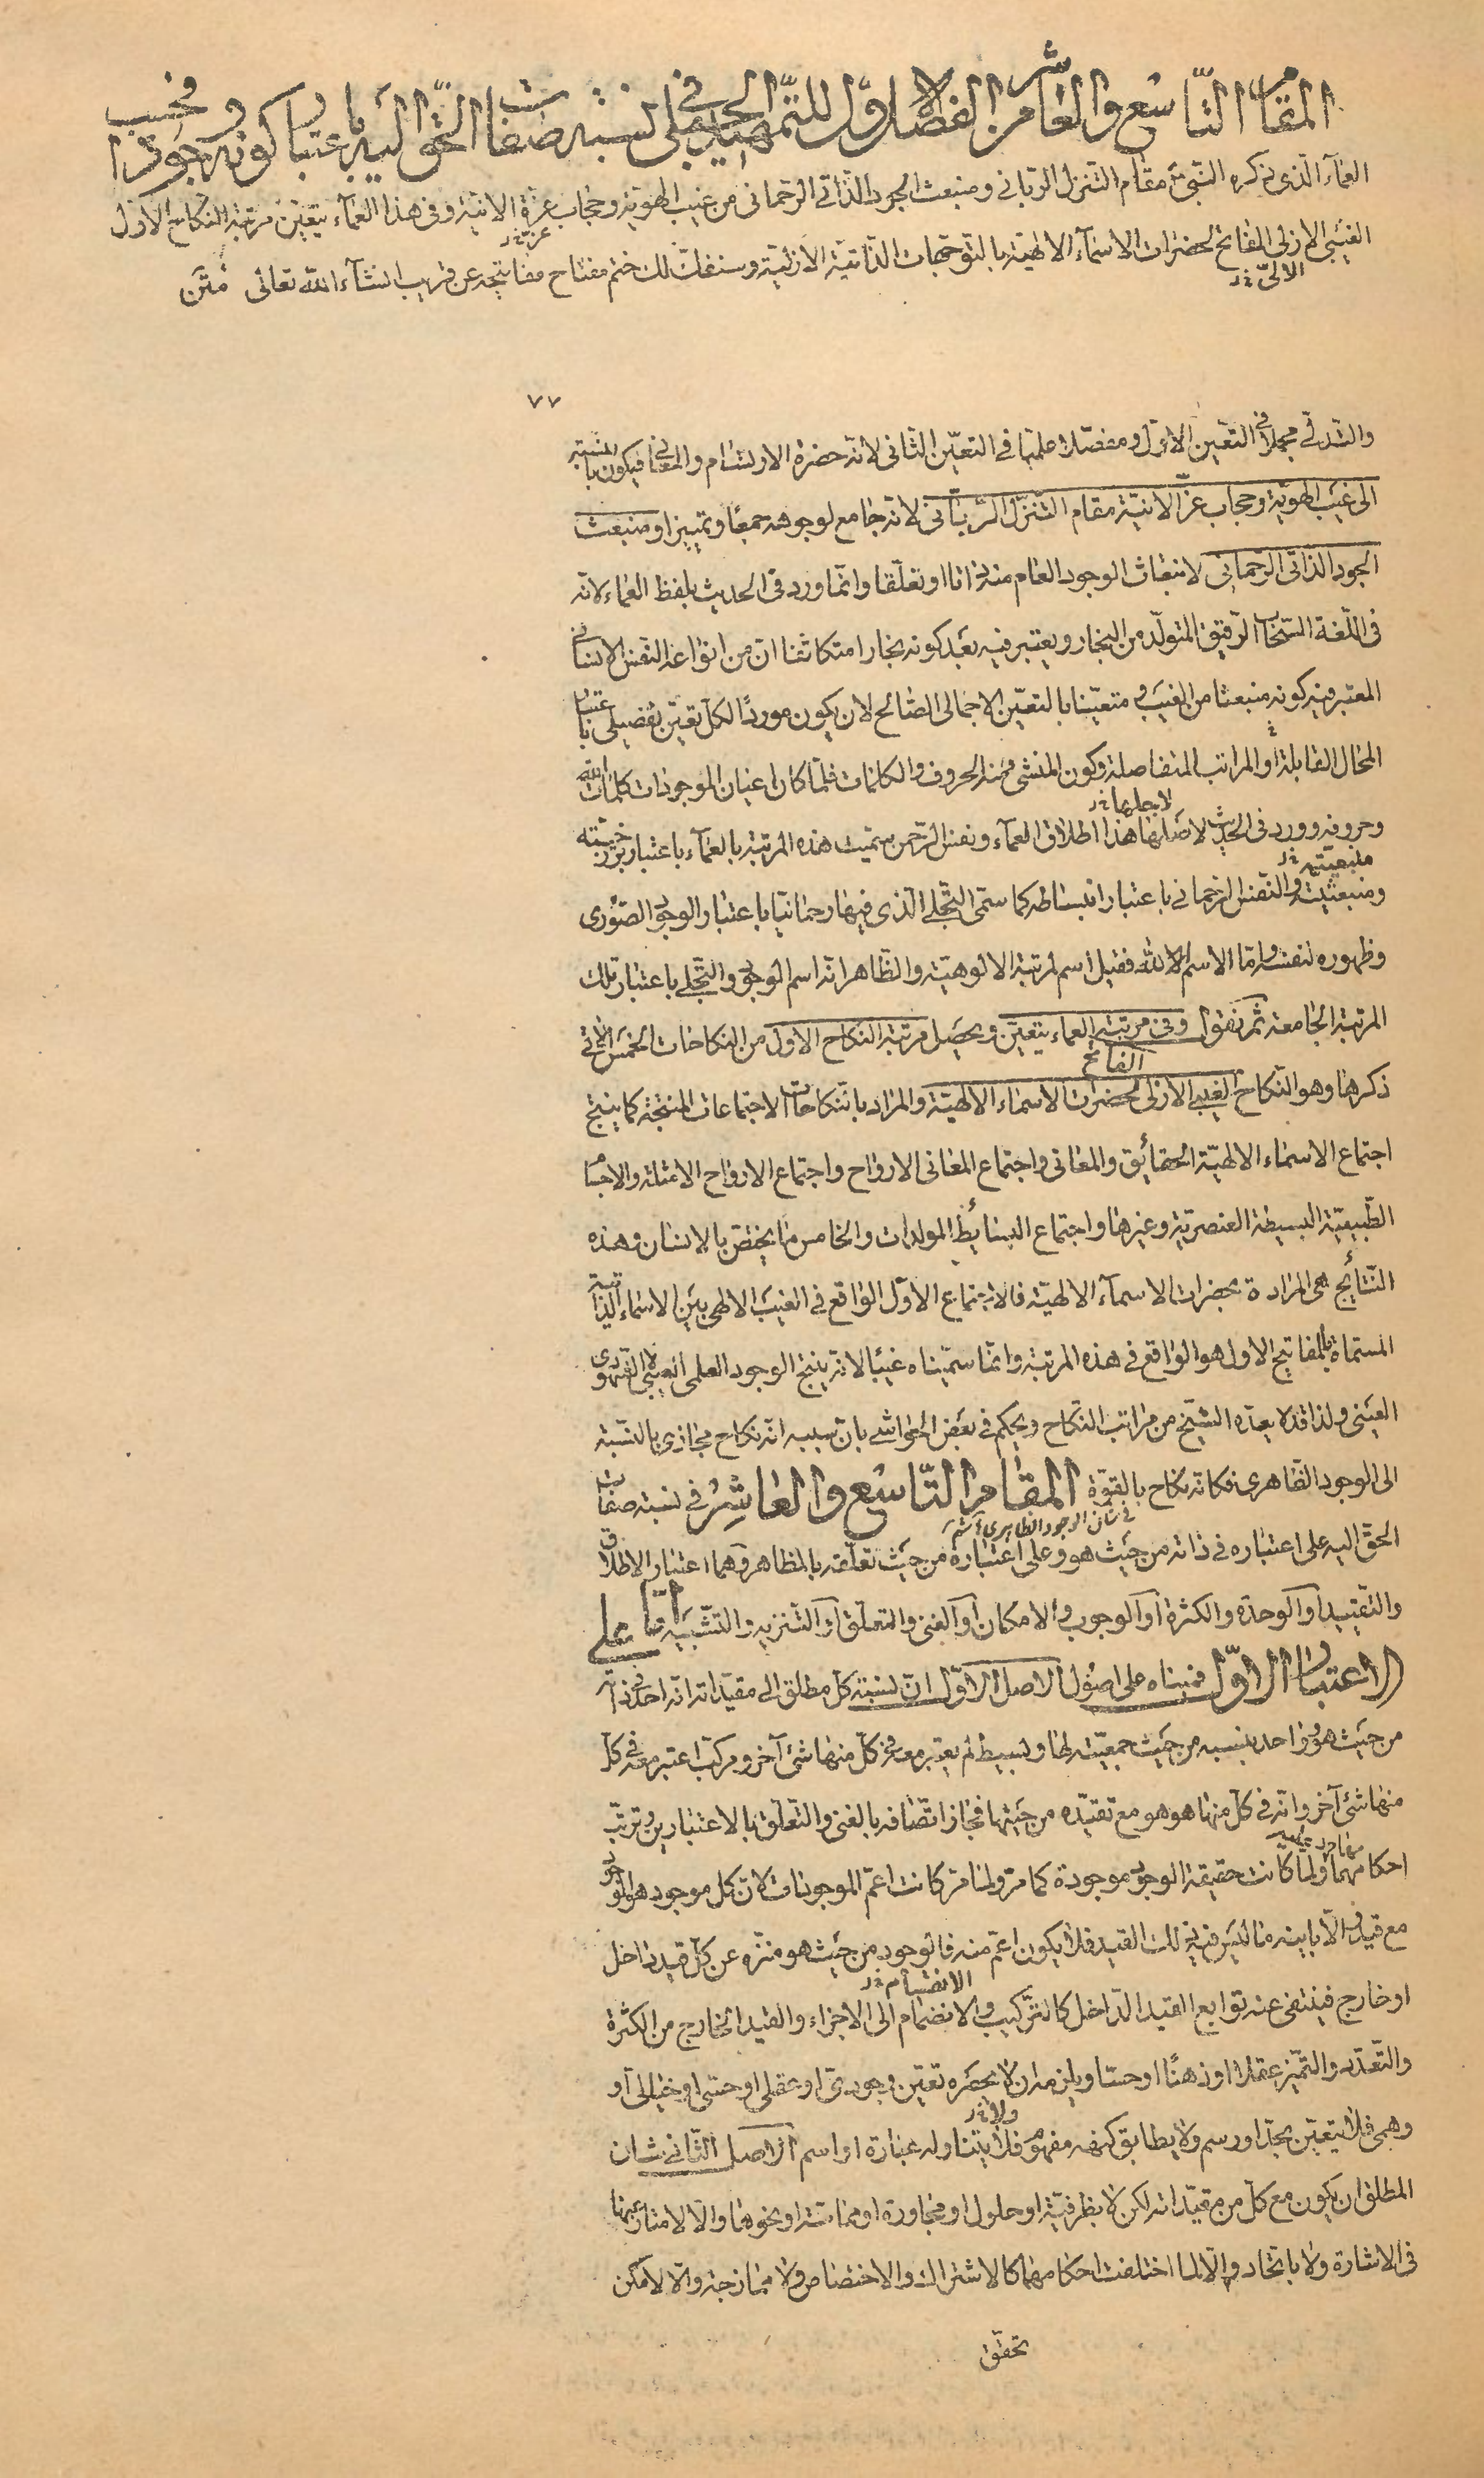 المقام التاسع والعاشر من الفصل الاول للتمهيد الجملي في نسبة صفات الحق اليه باعتبار كونه وجودا فحسب
العمآء الذى ذكره النبى ص مقام التنزل الربانى ومنبعث الجود الذاتى الرحمانى من غيب الهوية وحجاب عزة الانية وفى هذا العمآء يتعين مرتبة النكاح الاول
عز خ‌ر
الغيبى الازلى الفاتح لحضرات الاسمآء الالهية بالتوجهات الذاتية الازلية وسنفك لك ختم مفتاح مفاتيحه عن قريب انشآء الله تعالى متن
٧٧
والتدلى مجملا فى التعين الاول ومفصلا علميا فى التعين الثانى لانه حضرة الارتسام والمعانى فيكون بالنسبة
الى غيب الهوية وحجاب عز الانية مقام التنزل الربانى لانه جامع لوجوهه جمعا وتمييزا ومنبعث
الجود الذاتى الرحمانى لانبعاث الوجود العام منه ذاتا او تعلقا وانما ورد فى الحديث بلفظ العماء لانه
فى اللغة السحاب الرقيق المتولد من البخار ويعتبر فيه بعد كونه بخارا متكاثفا ان من انواعه النفس الانسانى
المعتبر فيه كونه منبعثا من الغيب و متعينا بالتعين الاجمالى الصالح لان يكون موردا لكل تعين تفصيلى باعتبار
المحال القابلة او المراتب المتفاصلة وكون المنشئ منه الحروف والكلمات فلما كان اعيان الموجودات كلمات الله
لاجلها خ‌ر
وحروفه وورد فى الحديث لاصلها هذا اطلاق العمآء ونفس الرحمن سميت هذه المرتبة بالعمآء باعتبار برزخيته
ومنبعثيته والنفس الرحمانى باعتبار انبساطه كما سمى التجلى الذى فيها رحمانيا باعتبار الوجود الصورى
وظهوره لنفسه واما الاسم الله فقيل اسم لمرتبة الالوهية والظاهر انه اسم الوجود والتجلى باعتبار تلك
المرتبة الجامعة ثم نقول وفى مرتبة العماء يتعين ويحصل مرتبة النكاح الاول من النكاحات الخمس الاتى
الفاتح
ذكرها وهو النكاح الغيبى الازلى لحضرات الاسماء الالهية والمراد بالنكاحات الاجتماعات المنتجة كما ينتج
اجتماع الاسماء الالهية الحقائق والمعانى واجتماع المعانى الارواح واجتماع الارواح الامثلة والاجسام
الطبيعية البسيطة العنصرية وغيرها واجتماع البسائط المولدات والخامس ما يختص بالانسان وهذه
النتائج هى المرادة بحضرات الاسمآء الالهية فالاجتماع الاول الواقع فى الغيب الالهى بين الاسماء الذاتية
المسماة بالمفاتيح الاول هو الواقع فى هذه المرتبة وانما سميناه غيبا لانه ينتج الوجود العلمى الغيبى لا الشهودى
العينى ولذا قد لا يعده الشيخ من مراتب النكاح ويحكم فى بعض الحواشى بان سببه انه نكاح مجازى بالنسبة
الى الوجود الظاهرى فكانه نكاح بالقوة المقام التاسع والعاشر فى نسبة صفات
الحق اليه على اعتباره فى ذاته من حيث هو وعلى اعتباره من حيث تعلقه بالمظاهر وهما اعتبار الاطلاق
والتقييد او الوحدة والكثرة او الوجوب والامكان او الغنى والتعلق او التنزيه والتشبيه اما على
الاعتبار الاول فمبناه على اصول الاصل الاول ان نسبة كل مطلق الى مقيداته انه احد فى ذاته
من حيث هو وواحد بنسبه من حيث جمعيته لها وبسيط لم يعتبر معه فى كل منها شئ آخر ومركب اعتبر معه فى كل
منها شئ آخر وانه فى كل منها هو هو مع تقيده من حيثها فجاز اتصافه بالغنى والتعلق بالاعتبارين وترتب
احكامهما ولما كانت حقيقة الوجود موجودة كما مر ولما مر كانت اعم الموجودات لان كل موجود هو الوجود
مع قيد والا باينه ما ليس فيه ذلك القيد فلا يكون اعم منه فالوجود من حيث هو منزه عن كل قيد داخل
الانقسام خ‌ر
او خارج فينتفى عنه توابع القيد الداخل كالتركيب والانضمام الى الاجزاء والقيد الخارج من الكثرة
والتعدد والتميز عقلا او ذهنا او حسا ويلزمه ان لا يحصره تعين وجودى او عقلى او حسى او خيالى او
ولا خ‌ر
وهمى فلا يتعين بحد او رسم ولا يطابق كنهه مفهوم فلا يتناوله عبارة او اسم الاصل الثانى شان
المطلق ان يكون مع كل من مقيداته لكن لا بظرفية او حلول او مجاورة او مماسة او نحوها والا لامتاز عنها
فى الاشارة ولا باتحاد والا لما اختلفت احكامهما كالاشتراك والاختصاص ولا ممازجة والا لامكن
تحقق